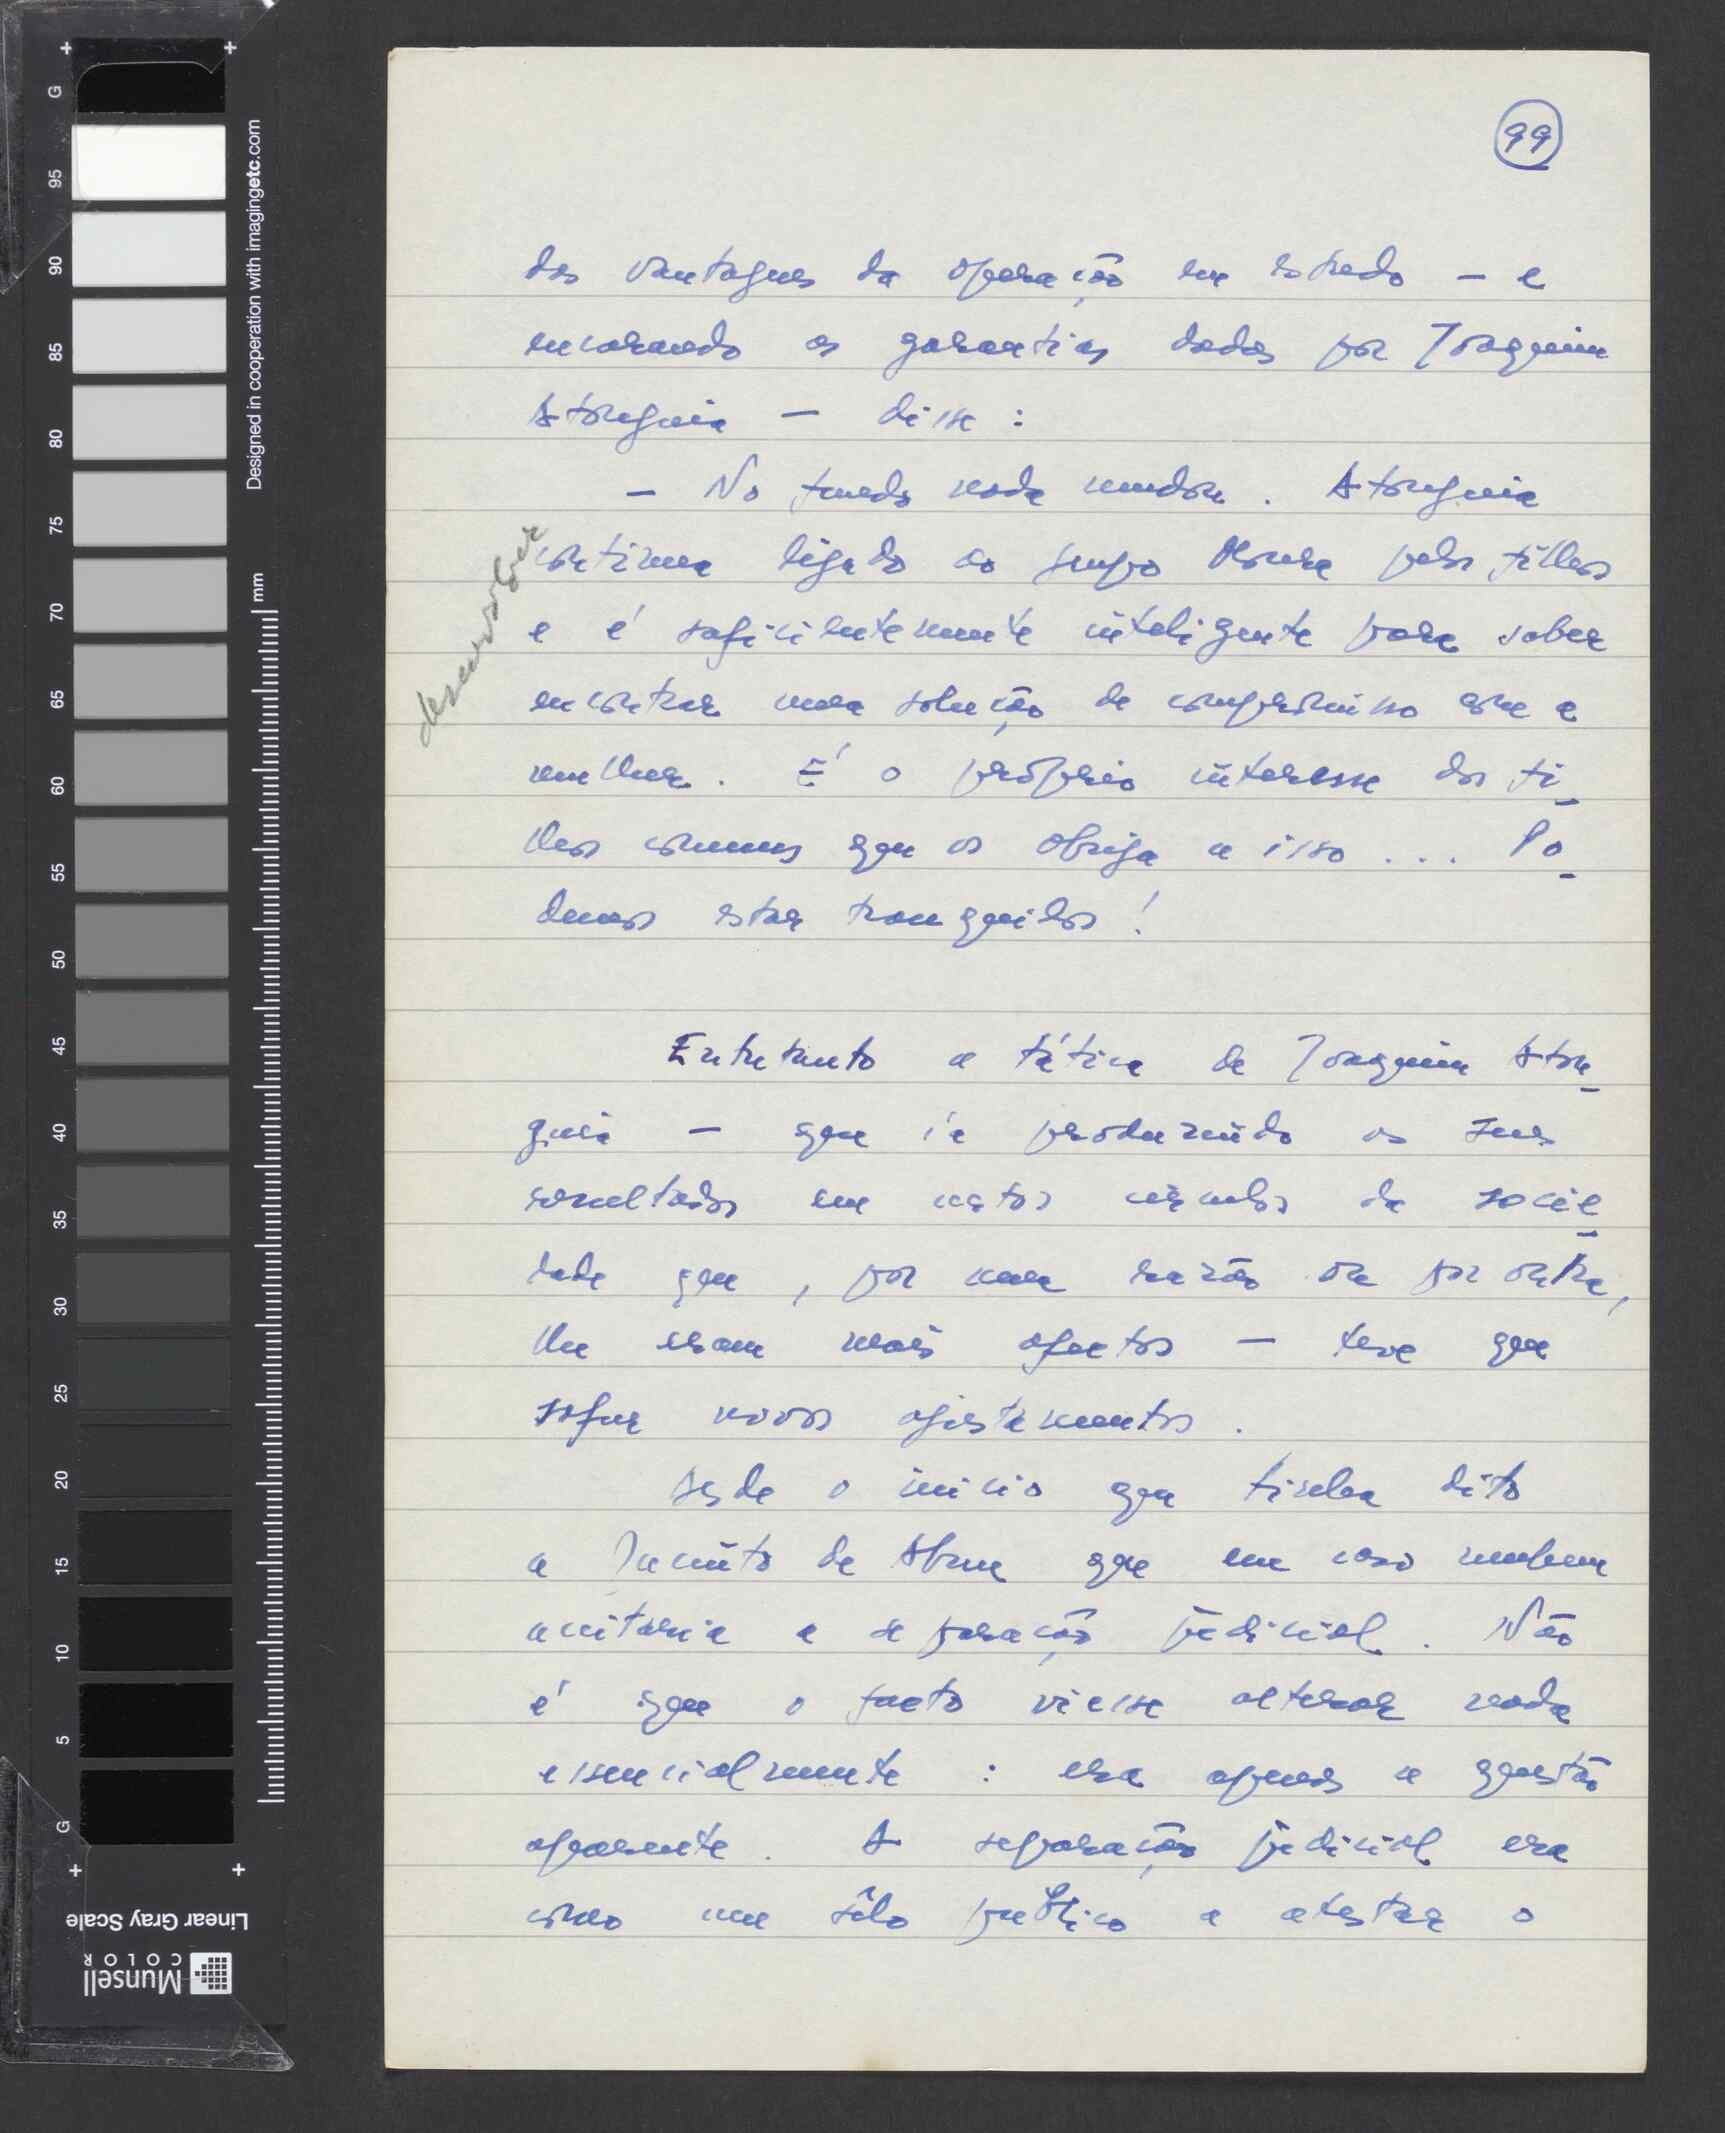 99
das vantagens da operação em estudo – e
encarando as garantias dadas por Joaquim
Atouguia – disse :
– No fundo nada mudou. Atouguia
continua ligado ao grupo Abrunª pelos filhos
e é suficientemente inteligente para saber
encontrar uma solução de compromisso com a
mulher. É o próprio interesse dos fi-
lhos comuns que os obriga a isso . . . Po-
demos estar tranquilos !
desenvolver
Entretanto a tática de Joaquim Atou-
guia – que ia produzindo os seus
resultados em certos círculos da socie-
dade que, por uma razão ou por outra,
lhe eram mais afectos – teve que
sofrer novos ajustamentos.
Desde o início que tinha dito
a Jacinto de Abrunª que em caso nenhum
aceitaria a separação judicial. Não
é que o facto viesse alterar nada
essencialmente : era apenas a questão
aparente. A separação judicial era
como um sêlo público a atestar o
G
95
90
85
80
75
70
65
60
55
50
45
40
35
30
25
20
15
10
5
G
Designed in cooperation with imagingetc.com
mm
Linear Gray Scale
Munsell
COLOR